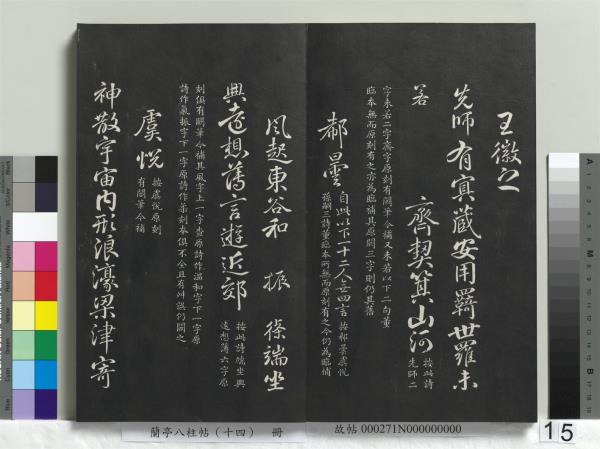 王徽之
先師有冥藏安用羇世羅未
若　　齊契箕山阿 按此詩
先師二
字未若二字齊字原刻有闕筆今補又未若以下二句董
臨本無而原刻有之亦為臨補其原闕三字則仍其舊
郗曇 自此以下一十二人各四言 按郗曇虞悅
孫嗣三詩董臨本所無而原刻有之今仍為臨補
風起東谷和　振　條端坐
興遠想薄言遊近郊 按此詩端坐興
遠想薄六字原
刻俱有闕筆今補其風字上一字查原詩作溫和字下一字原
詩作氣振字下一字原詩作柔刻本俱不全且有舛誤仍闕之
虞悅 按虞悅原刻
有闕筆今補
神散宇宙內形浪濠梁津寄
蘭亭八柱帖（十四）　冊
故帖 000271N000000000
15